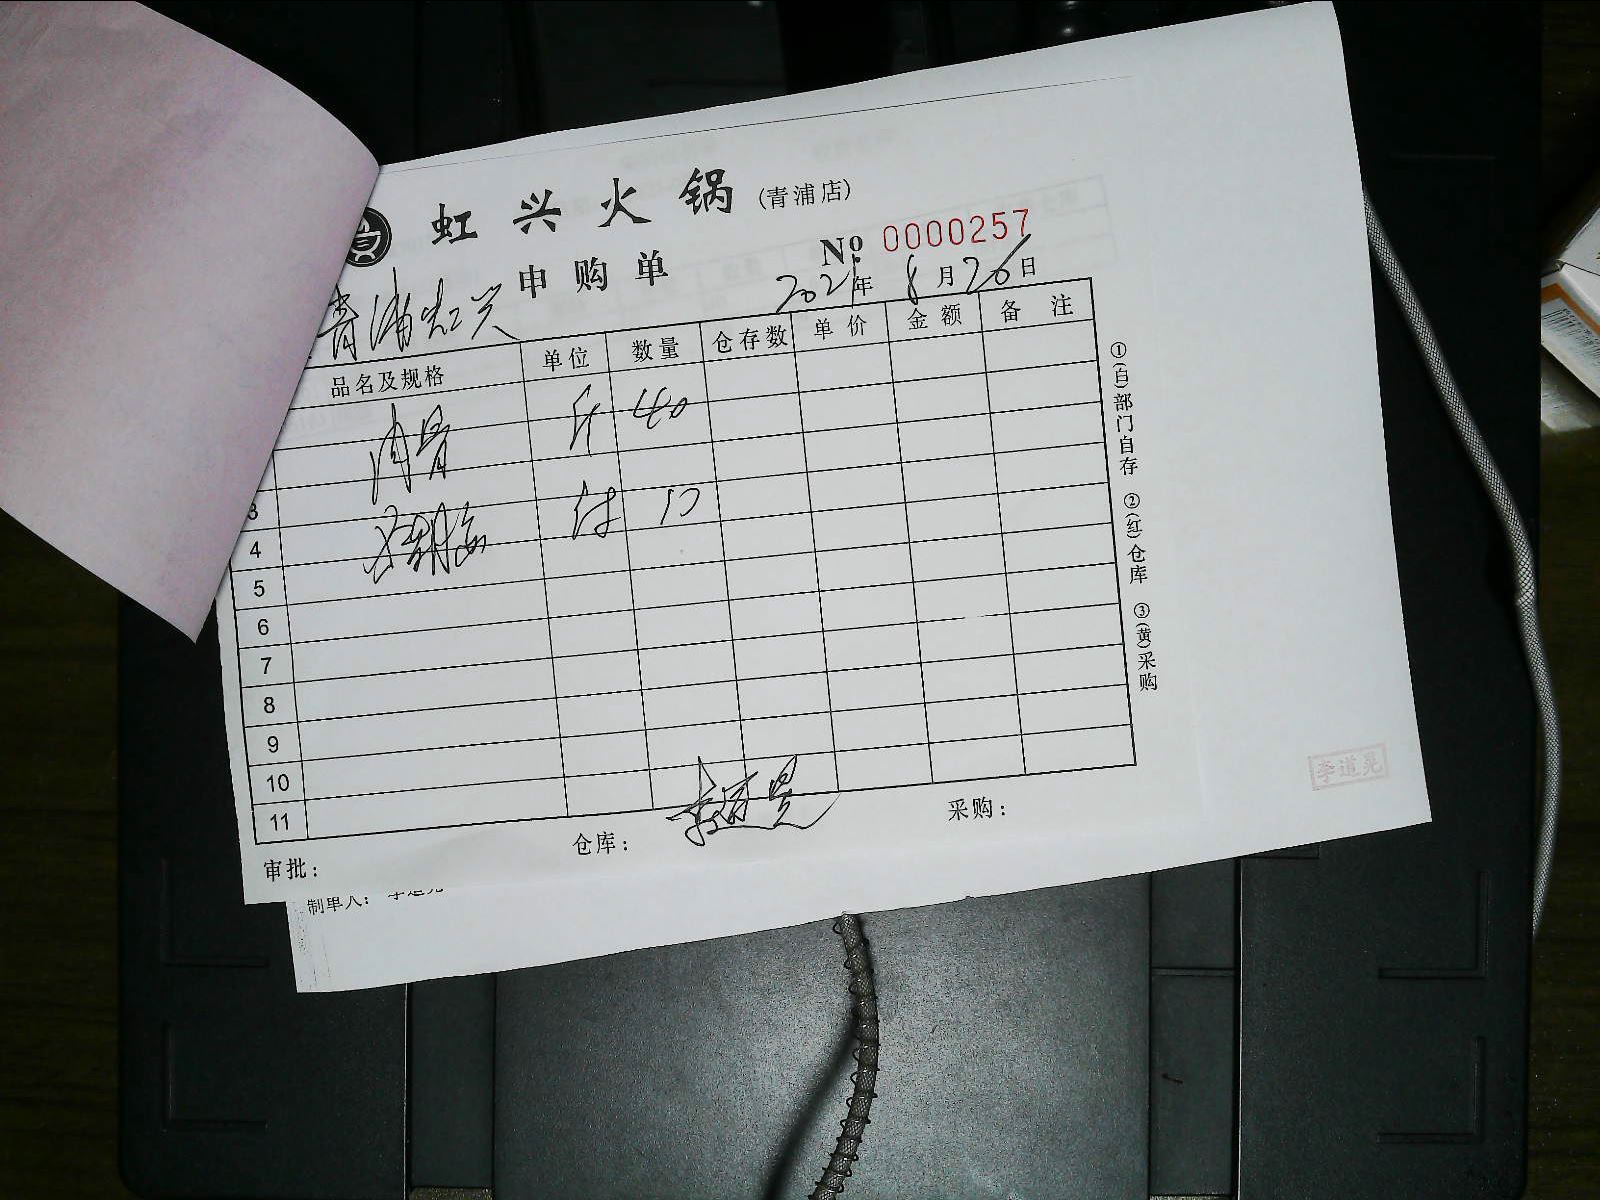 虹兴火锅(青浦店)
申购单
№ 0000257
2021年8月26日
青浦虹兴
品名及规格 单位 数量 仓存数 单价 金额 备注
肉骨 斤 40
3
付 10
4
5
6
7
8
9
10
11
审批： 仓库：李道晃 采购：
①(白)部门自存 ②(红)仓库 ③(黄)采购
李道晃
制单人： 李道晃